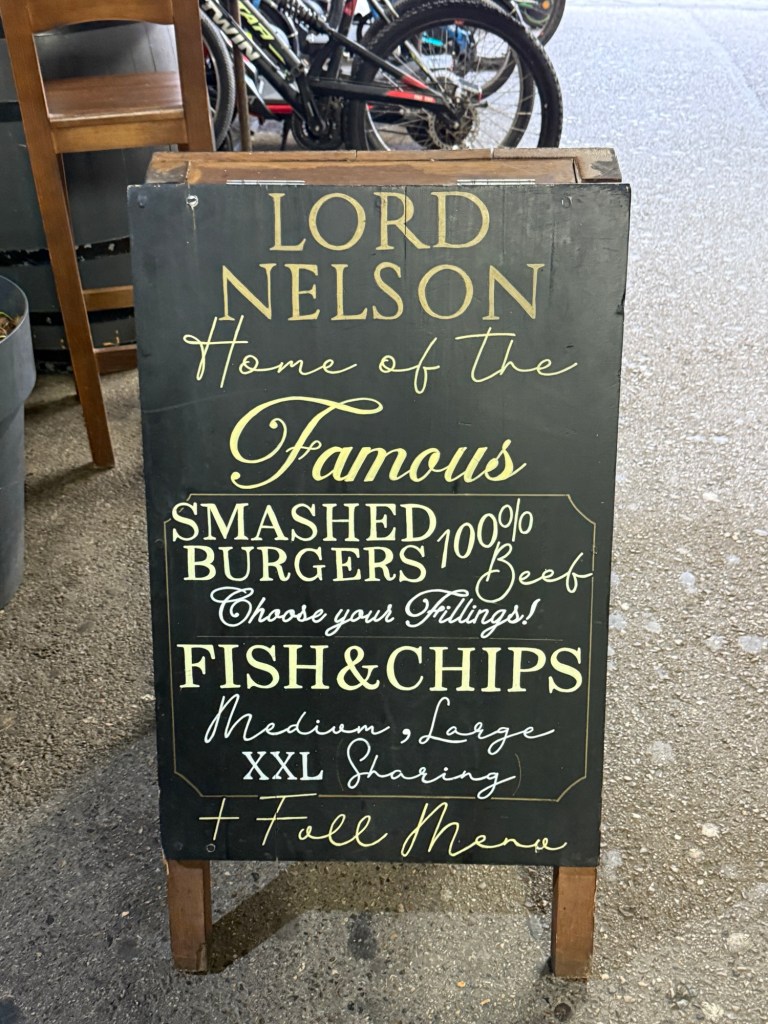 TWIN
LORD
NELSON
Home of the
Famous
SMASHED
BURGERS
100%
Beef
Choose your Fillings!
FISH&CHIPS
Medium, Large
XXL (Sharing)
+ Full Menu